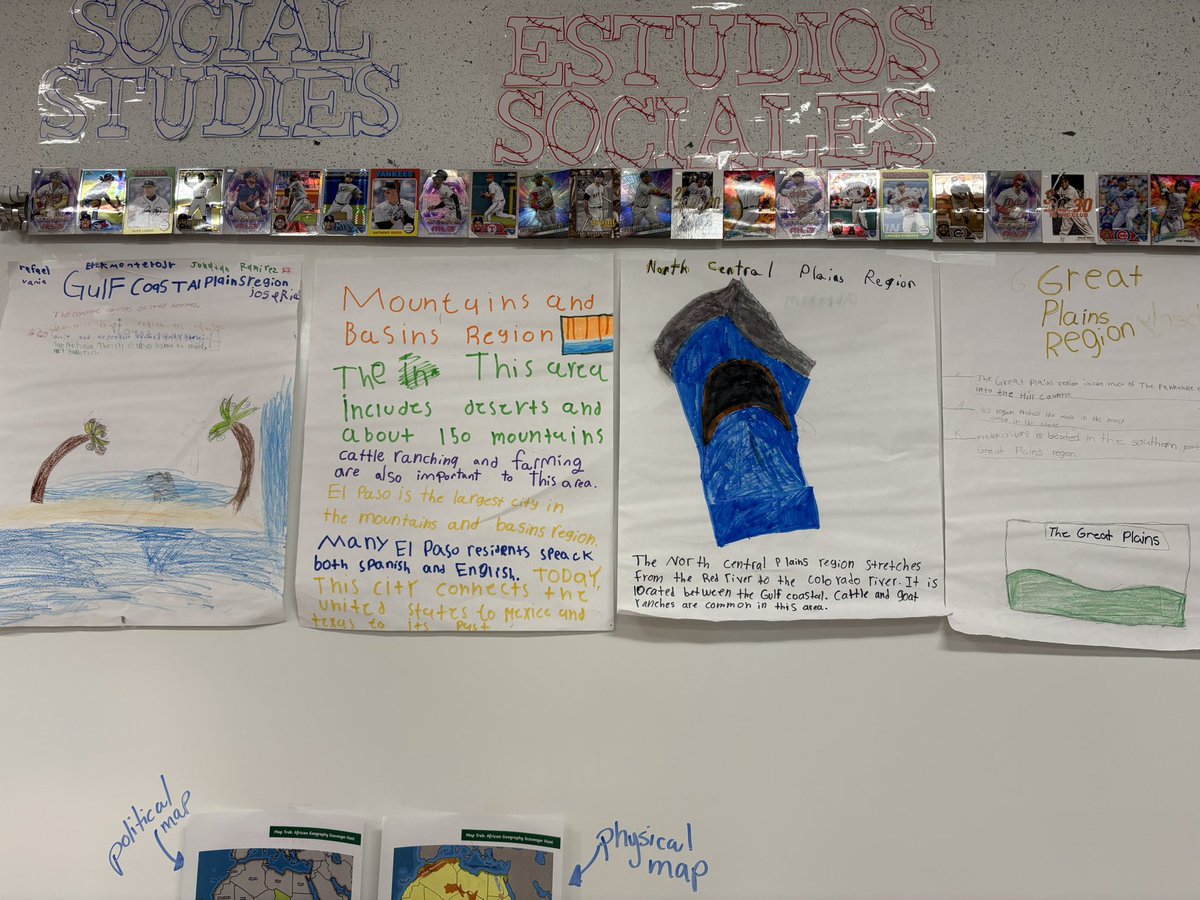 SOCIAL
STUDIES
ESTUDIOS
SOCIALES
YANKEES
30
rafael
Jonatan Ramirez
GULF COASTAl Plains region
Mountains and
Basins Region
The This area
includes deserts and
about 150 mountains
cattle ranching and farming
are also important to This area.
El Paso is the largest city in
the mountains and basins region.
Many El Paso residents speack
both spanish and English. TODAY,
This city connects the
united states to Mexico and
texas to its past
North Central Plains Region
The North Central Plains region stretches
from the Red River to the Colorado River. It is
located between the Gulf coastal. Cattle and goat
ranches are common in this area.
Great
Plains
Region
The Great Plains region includes much of The Panhandle
into the Hill country
this region Produce the most in the most
is located in the southern part
Great Plains region
The Great Plains
political
map
Map Trek: African Geography Scavenger Hunt
Map Trek: African Geography Scavenger Hunt
physical
map